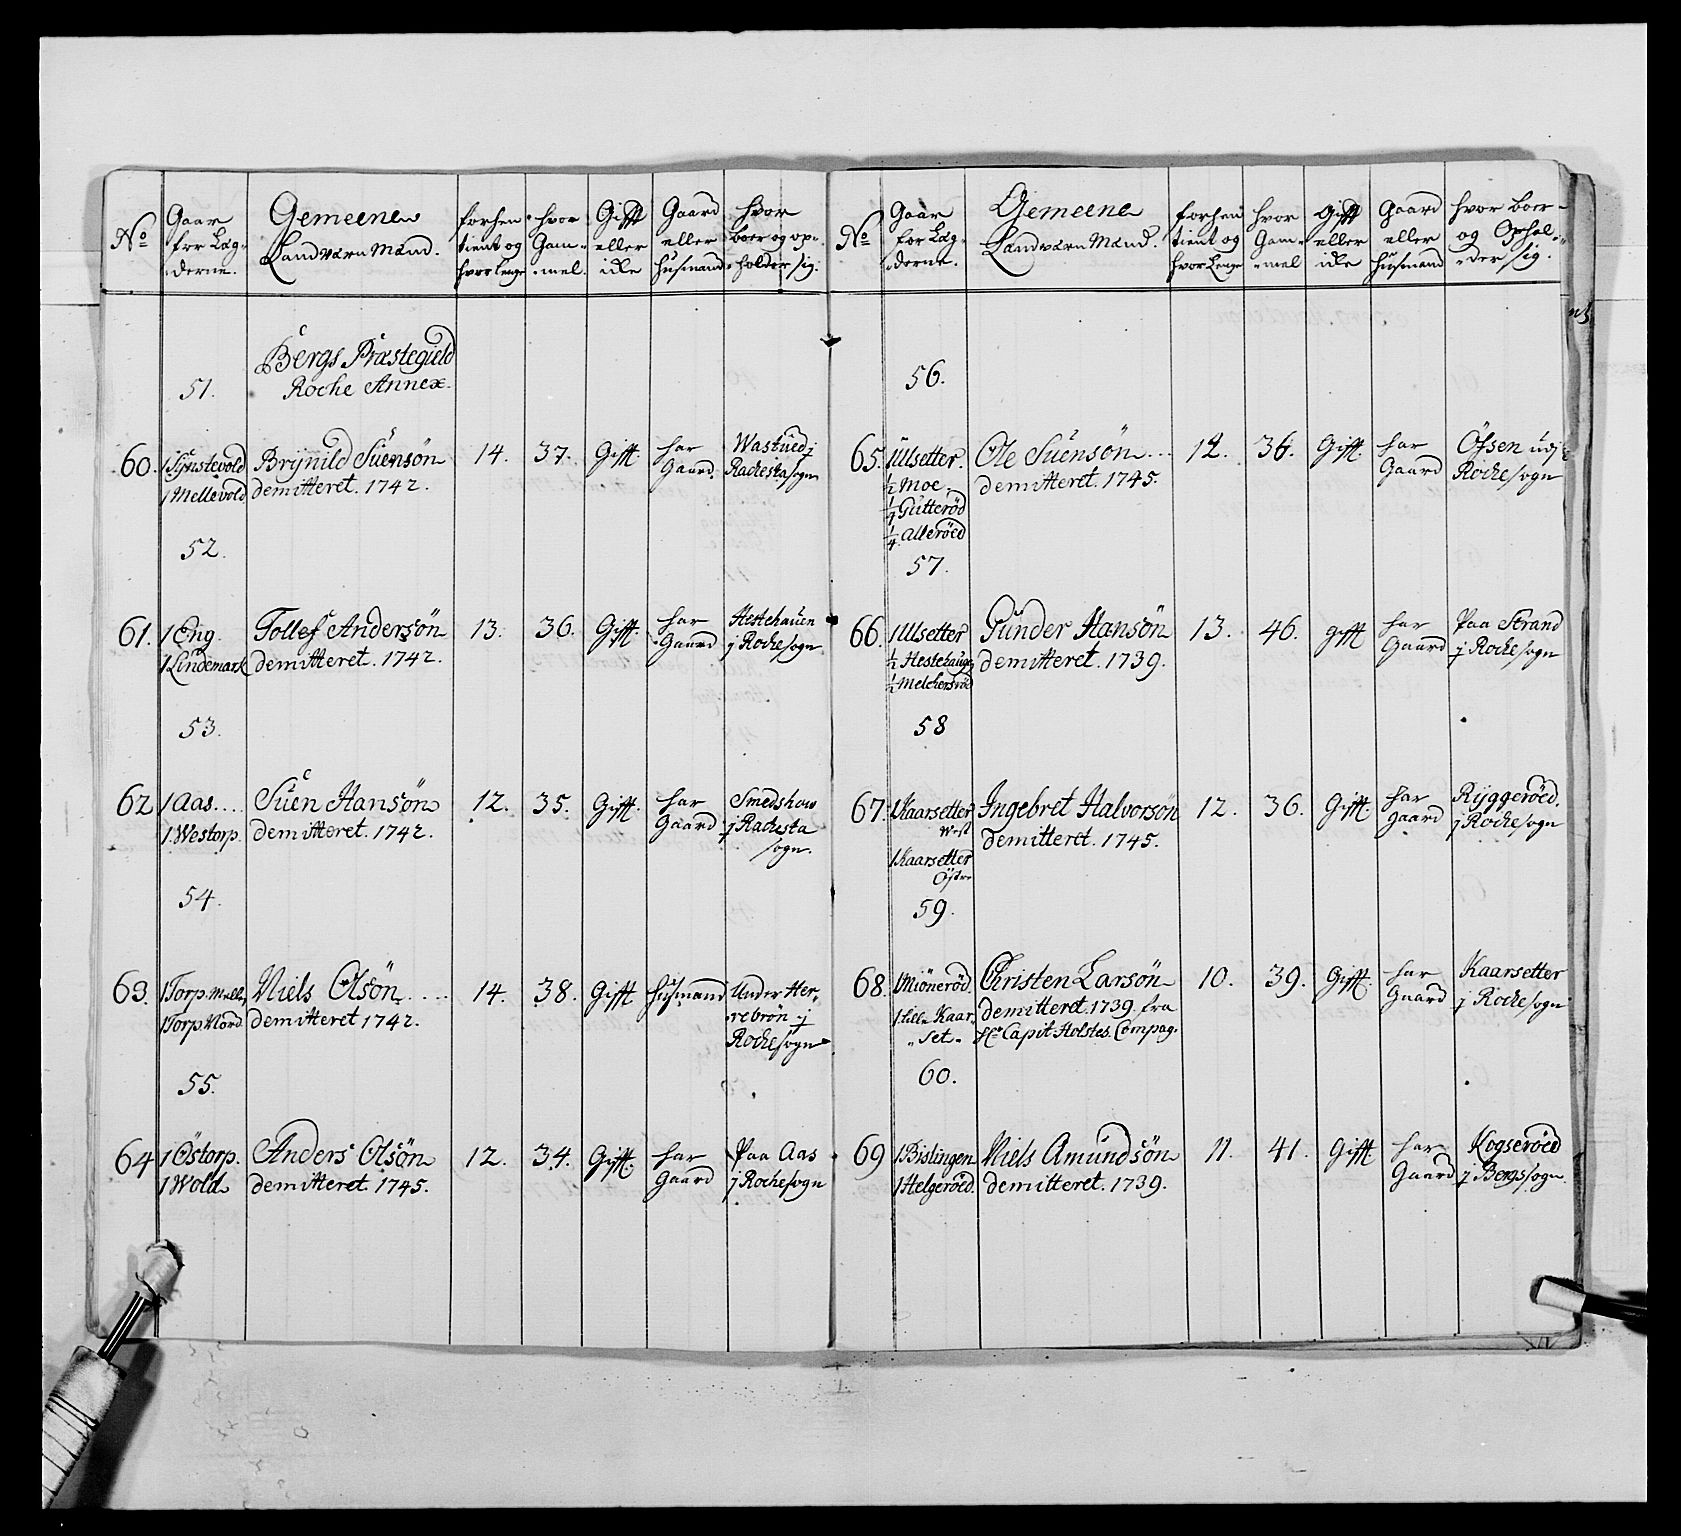 No
Gaar
for Læg-
derne.
Gemeene
Landværn Mænd.
forhen
tient og
hvor længe
hvor
Gam-
mel.
Gifft
eller
idle
Gaard
eller
huusmand
hvor
boer og op-
holder sig.
Bergs Præstegield
Roche Annex.
51.
60.
1 Mellevold
Brynild Suensön
demitteret. 1742.
14.
37.
Gift.
har
Gaard.
Wastued j
Rackesta sogn
52.
61.
1 Eng.
1 Lindemark
Tollef Andersön
demitteret. 1742.
13.
36.
Gift.
har
Gaard
Hestehauen
j Roche sogn
53.
62
1 Aas....
1 Westorp.
Suen Hansön
demitteret. 1742.
12.
35.
Gift.
har
Gaard
Smedshow
j Rackesta
sogn.
54.
63.
1 Torp. Melle,
1 Torp Nord
Niels Olsön....
demitteret 1742.
14.
38.
Gifft
huusmand
Under Her-
rebrön j
Roche sogn
55.
64
1 Östorp.
1 Wold
Anders Olsön
demitteret. 1745.
12.
34.
Gifft.
har
Gaard
Paa Aas
j Roche sogn
No
Gaar
for Læg-
derne.
Gemeene
Landværn Mænd.
forhen
tient og
hvor Længe
hvor
Gam-
mel
Gifft
eller
idle
Gaard
eller
huusmand
hvor boer
og Ophol-
der sig.
56.
65.
1 Ulsetter.
½ Moe.
¼ Gutteröd
¼ Alleröed
Ole Suensön...
demitteret. 1745.
12.
36.
Gift.
har
Gaard
Öfsen udj
Roche sogn
57.
66.
1 Ulsetter
½ Hestehauge
½ Melchersröd
Gunder Hansön
demitteret. 1739.
13.
46.
gifft
har
Gaard
Paa Strand
j Roche sogn
58
67.
1 Kaarsetter
West
1 Kaarsetter
Östre
Ingebret Halvorsön
demitteret. 1745.
12.
36.
Gift.
har
Gaard
Ryggeröed.
j Roche sogn
59.
68.
1 Miöneröd.
1 Lille Kaar-
set
Christen Larsön
demitteret. 1739. fra
Hr Capit Holstes. Compag.
10.
39.
Gifft.
har
Gaard
Kaarsetter
j Roche sogn
60.
69
1 Bislingen
1 Helgeröed.
Niels Amundsön
demitteret. 1739.
11.
41.
Gifft
har
Gaard
Kogseröed
j Bergs sogn.